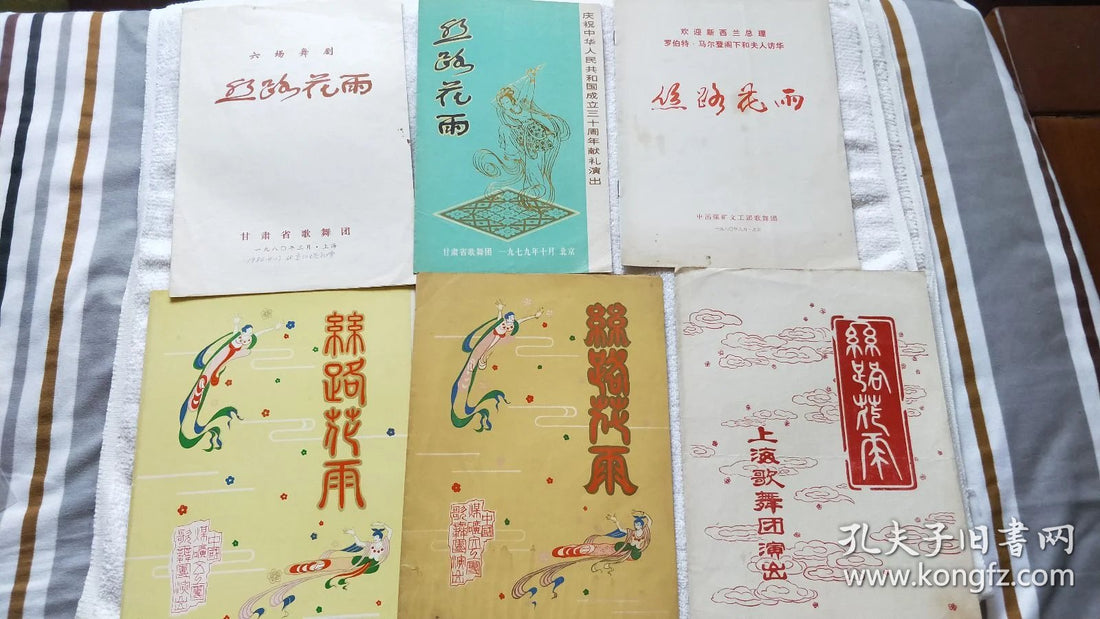 六场舞剧
丝路花雨
甘肃省歌舞团
一九八〇年三月·上海
丝路花雨
庆祝中华人民共和国成立三十周年献礼演出
甘肃省歌舞团 一九七九年十月 北京
欢迎新西兰总理
罗伯特·马尔登阁下和夫人访华
丝路花雨
中国煤矿文工团歌舞团
一九八〇年九月·北京
絲路花雨
中國
煤礦文工團
歌舞團演出
絲路花雨
中國
煤礦文工團
歌舞團演出
絲路花雨
上海歌舞团演出
孔夫子旧书网
www.kongfz.com